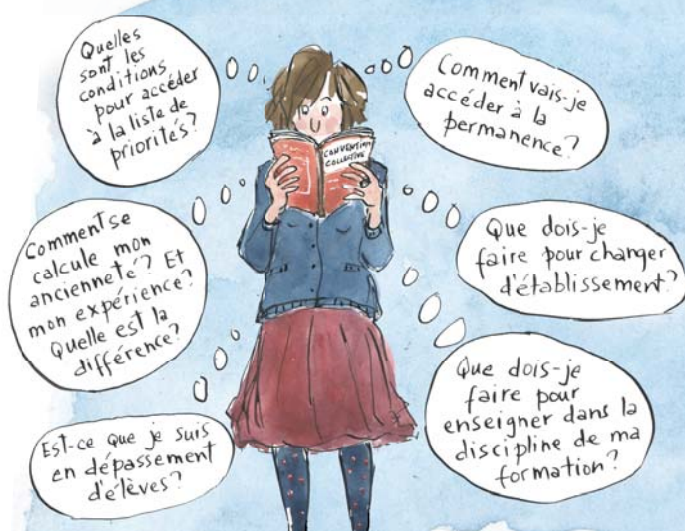 Quelles
sont les
conditions
pour accéder
à la liste de
priorités?
Comment vais-je
accéder à la
permanence?
CONVENTION
COLLECTIVE
Comment se
calcule mon
ancienneté? Et
mon expérience?
Quelle est la
différence?
Que dois-je
faire pour changer
d'établissement?
Est-ce que je suis
en dépassement
d'élèves?
Que dois-je
faire pour
enseigner dans la
discipline de ma
formation?